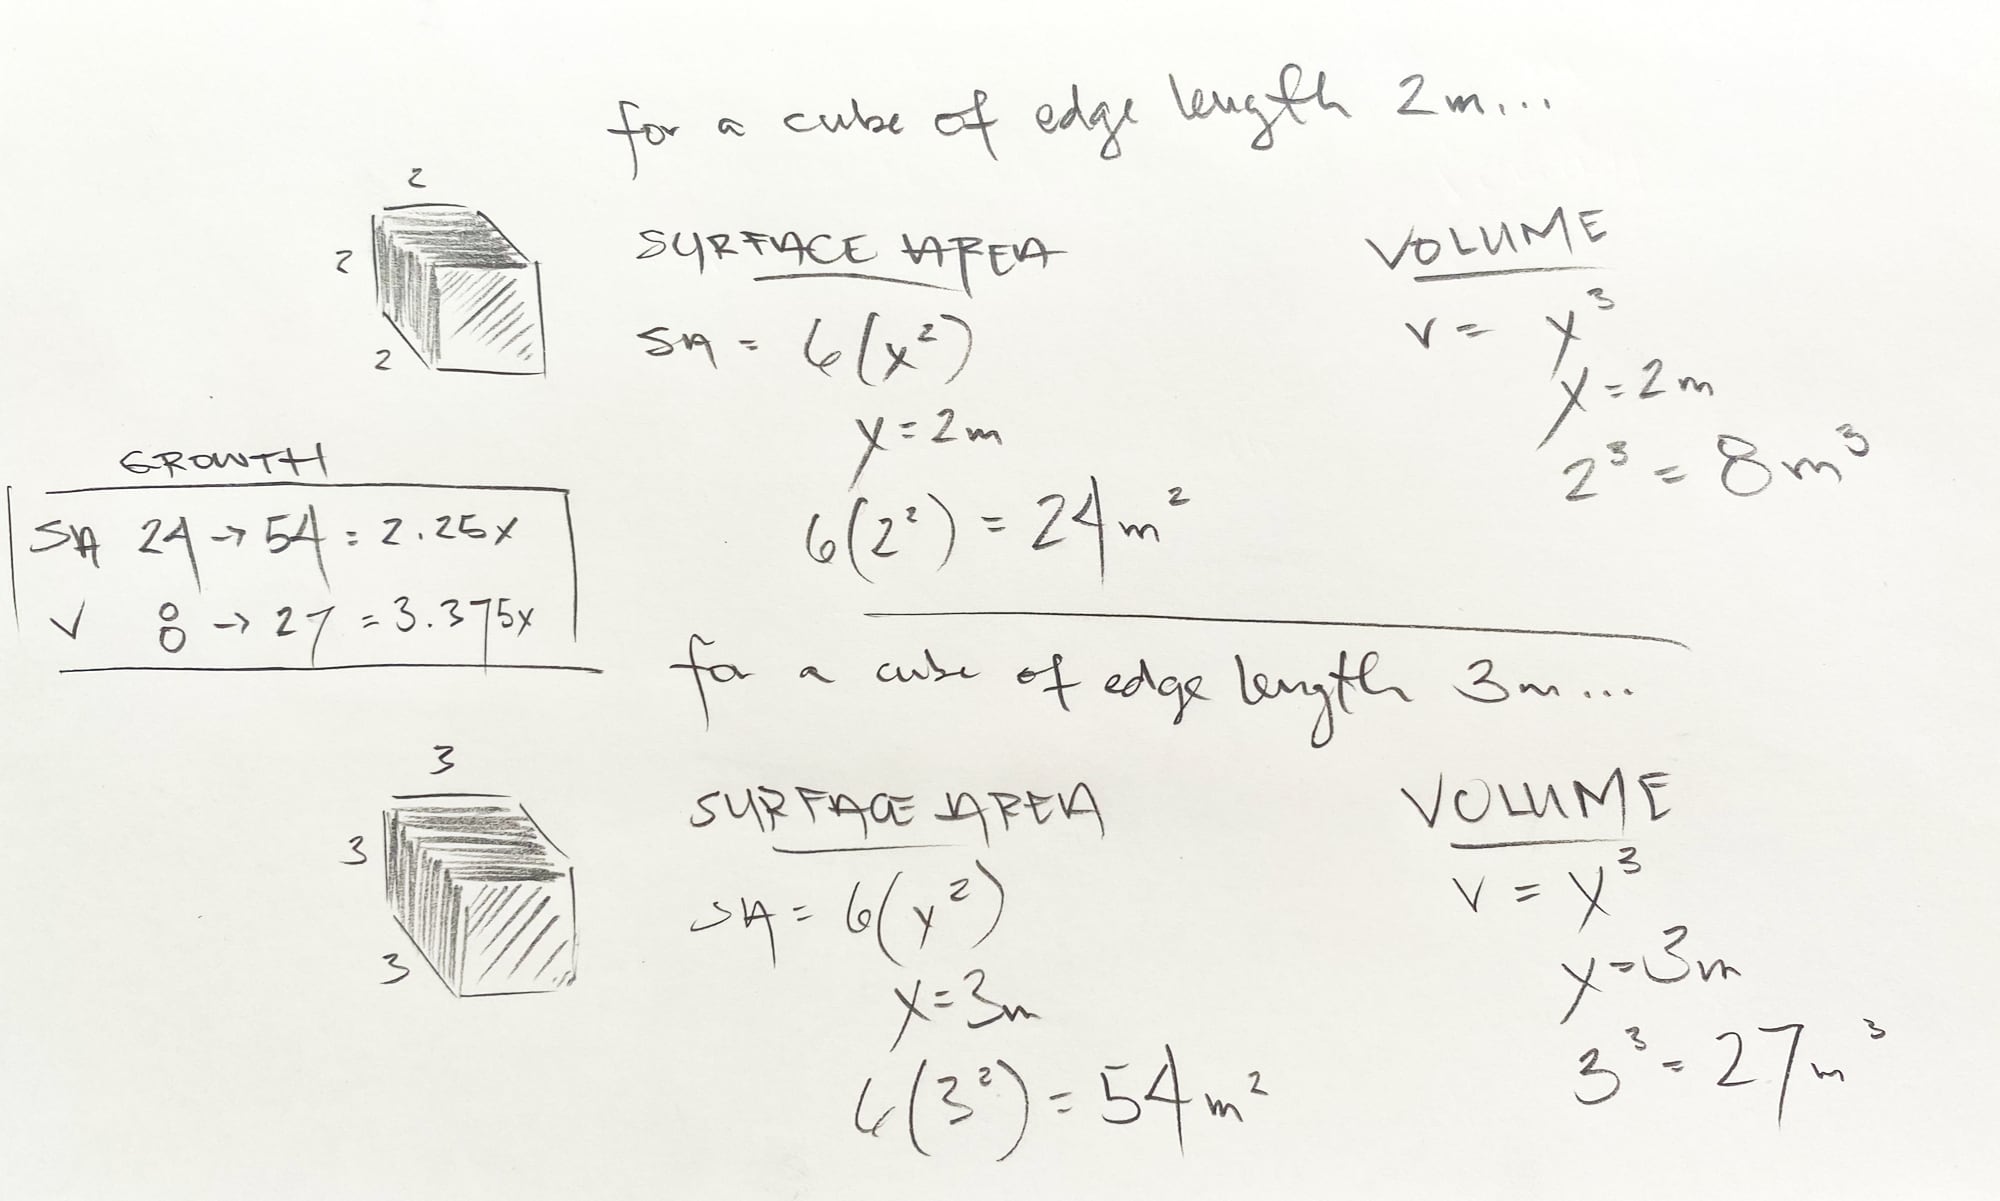 for a cube of edge length 2m...
2
2
2
SURFACE AREA
SA = 6(x²)
x = 2m
6(2²) = 24m²
VOLUME
V = x³
x = 2m
2³ = 8m³
GROWTH
SA 24 → 54 = 2.25x
V 8 → 27 = 3.375x
for a cube of edge length 3m...
3
3
3
SURFACE AREA
SA = 6(x²)
x = 3m
6(3²) = 54m²
VOLUME
V = x³
x = 3m
3³ = 27m³